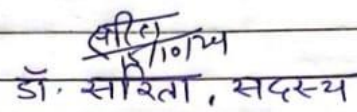 सरिता
15/10/24
डॉ. सरिता, सदस्य